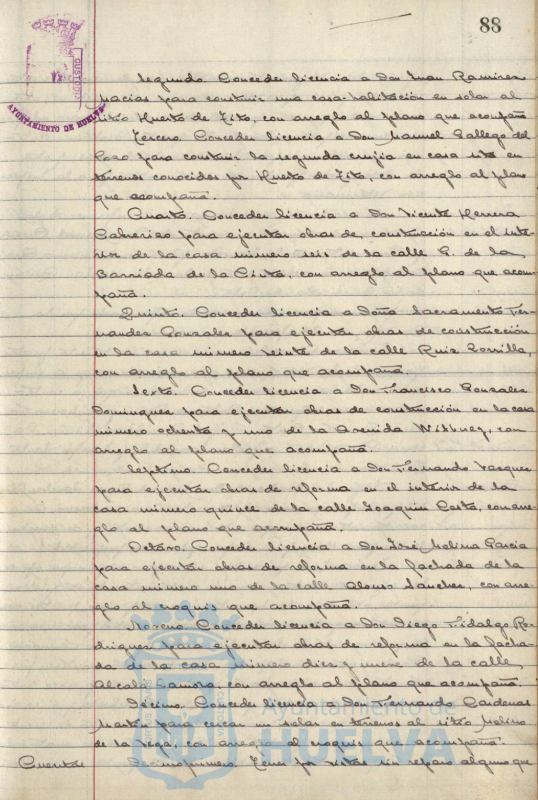 88
AYUNTAMIENTO DE HUELVA
CUSTODIA
Segundo. Conceder licencia a Don Juan Ramirez
Macias para construir una casa-habitación en solar al
sitio Huerto de Zito, con arreglo al plano que acompaña
Tercero. Conceder licencia a Don Manuel Gallego del
Pozo para construir la segunda crujia en casa sita en
terrenos conocidos por Huerto de Zito, con arreglo al plano
que acompaña.
Cuarto. Conceder licencia a Don Vicente Herrera
Cabrerizo para ejecutar obras de construcción en el inte-
rior de la casa número seis de la calle G. de la
Barriada de la Cinta, con arreglo al plano que acom-
paña.
Quinto. Conceder licencia a Doña Sacramento Fer-
nandez Gonzalez para ejecutar obras de construcción
en la casa número veinte de la calle Ruiz Zorrilla,
con arreglo al plano que acompaña.
Sexto. Conceder licencia a Don Francisco Gonzalez
Dominguez para ejecutar obras de construcción en la casa
número ochenta y uno de la Avenida Withney, con
arreglo al plano que acompaña.
Septimo. Conceder licencia a Don Fernando Vazquez
para ejecutar obras de reforma en el interior de la
casa número quince de la calle Joaquin Costa, con arre-
glo al plano que acompaña.
Octavo. Conceder licencia a Don José Molina Garcia
para ejecutar obras de reforma en la fachada de la
casa número uno de la calle Alonso Sanchez, con arre-
glo al croquis que acompaña.
Noveno. Conceder licencia a Don Diego Fidalgo Ro-
driguez para ejecutar obras de reforma en la facha-
da de la casa número diez y nueve de la calle
Alcalá Zamora, con arreglo al plano que acompaña.
Décimo. Conceder licencia a Don Fernando Cardenas
Martin para cercar un solar en terrenos al sitio Molino
de la Vega, con arreglo al croquis que acompaña.
Cuentas Decimoprimero. Tener por vistas sin reparo alguno que
Ayuntamiento de
HUELVA